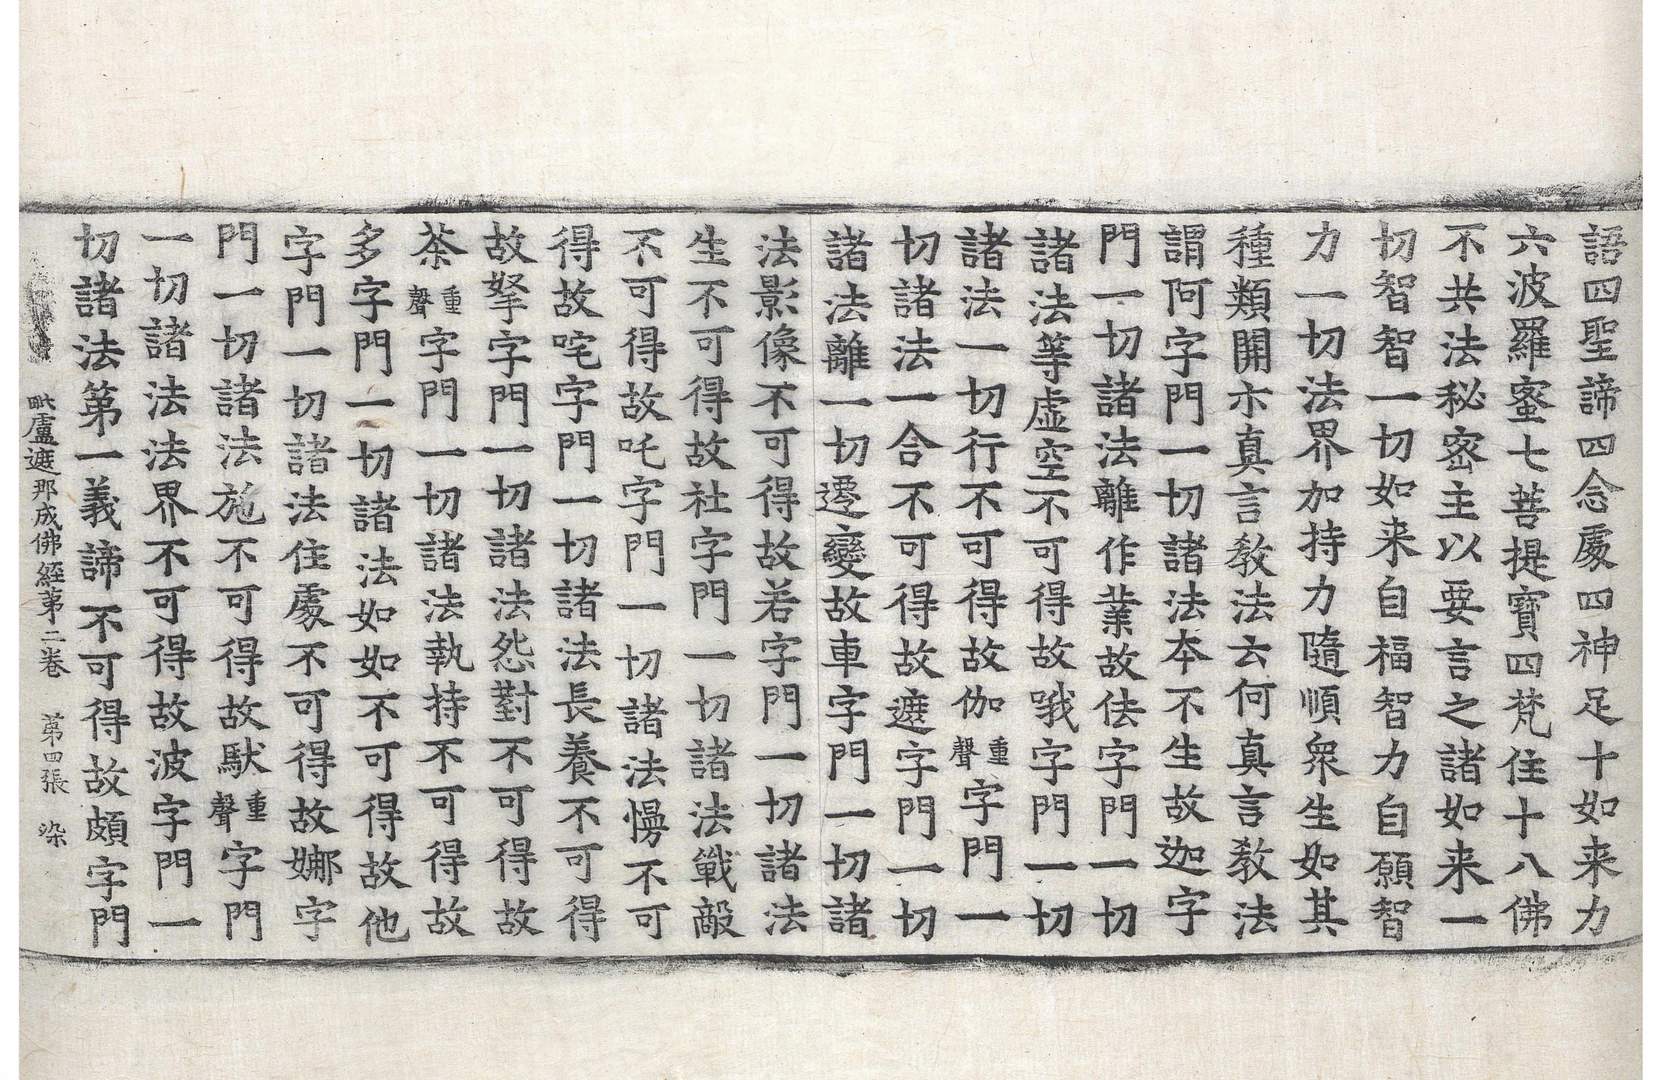 語四聖諦四念處四神足十如来力
六波羅蜜七菩提寶四梵住十八佛
不共法秘密主以要言之諸如来一
切智智一切如来自福智力自願智
力一切法界加持力隨順衆生如其
種類開示真言教法云何真言教法
謂阿字門一切諸法本不生故迦字
門一切諸法離作業故佉字門一切
諸法等虛空不可得故哦字門一切
諸法一切行不可得故伽重聲字門一
切諸法一合不可得故遮字門一切
諸法離一切遷變故車字門一切諸
法影像不可得故若字門一切諸法
生不可得故社字門一切諸法戰敵
不可得故吒字門一切諸法慢不可
得故咤字門一切諸法長養不可得
故拏字門一切諸法怨對不可得故
荼重聲字門一切諸法執持不可得故
多字門一切諸法如如不可得故他
字門一切諸法住處不可得故娜字
門一切諸法施不可得故馱重聲字門
一切諸法法界不可得故波字門一
切諸法第一義諦不可得故頗字門
毗盧遮那成佛經第二卷 第四張 染